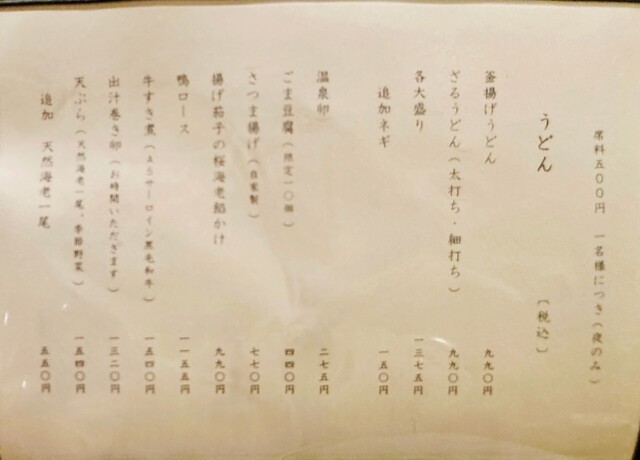 席料五〇〇円　一名様につき(夜のみ)
うどん　(税込)
釜揚げうどん　九九〇円
ざるうどん(太打ち・細打ち)　九九〇円
各大盛り　一三七五円
追加ネギ　一五〇円
温泉卵　二七五円
ごま豆腐(限定一〇個)　四四〇円
さつま揚げ(自家製)　七七〇円
揚げ茄子の桜海老餡かけ　九九〇円
鴨ロース　一一五五円
牛すき煮(A5サーロイン黒毛和牛)　一五四〇円
出汁巻き卵(お時間いただきます)　一三二〇円
天ぷら(天然海老一尾、季節野菜)　一五四〇円
追加　天然海老一尾　五五〇円